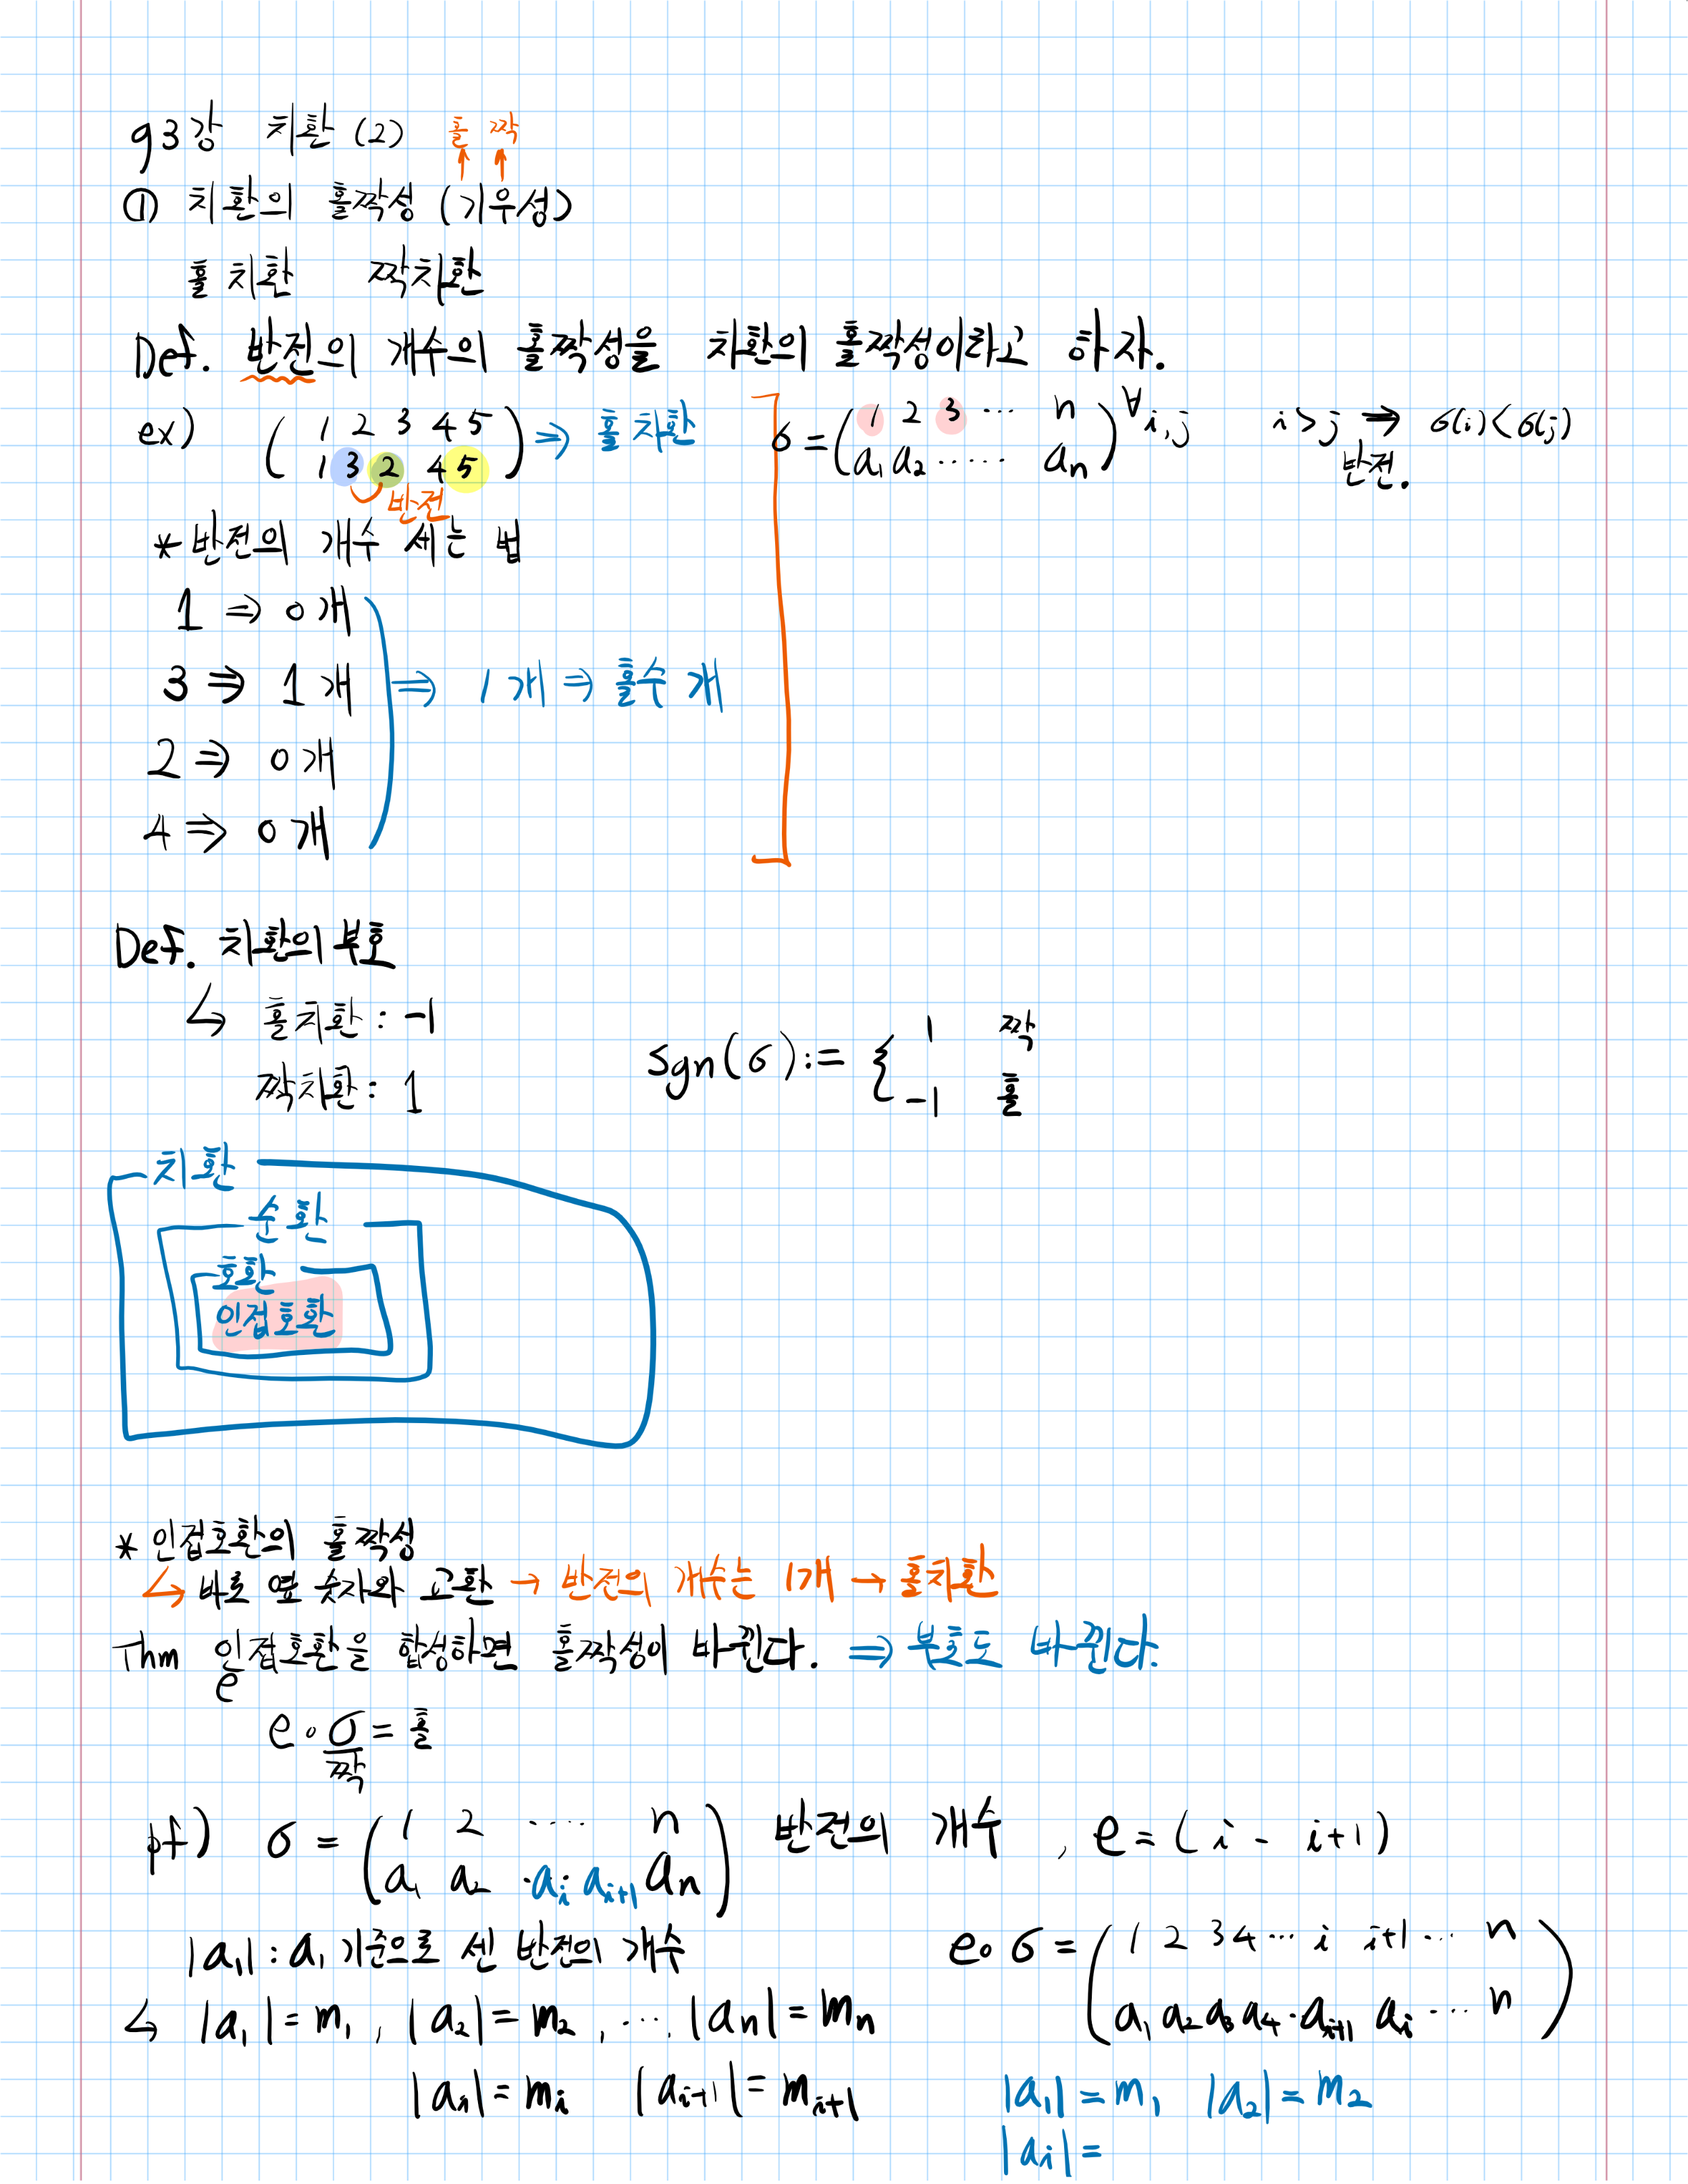 93강 치환 (2) 홀 짝
① 치환의 홀짝성 (기우성)
홀치환 짝치환
Def. 반전의 개수의 홀짝성을 치환의 홀짝성이라고 하자.
ex) ( 1 2 3 4 5 ) ⇒ 홀치환
( 1 3 2 4 5 )
반전
σ = ( 1 2 3 ⋯ n ) ∀i,j i>j ⇒ σ(i)<σ(j)
( a₁ a₂ ⋯⋯ aₙ ) 반전.
* 반전의 개수 세는 법
1 ⇒ 0개
3 ⇒ 1개 ⇒ 1개 ⇒ 홀수개
2 ⇒ 0개
4 ⇒ 0개
Def. 치환의 부호
↳ 홀치환 : -1
짝치환 : 1
sgn(σ) := { 1 짝
-1 홀
치환
순환
호환
인접호환
* 인접호환의 홀짝성
↳ 바로 옆 숫자와 교환 → 반전의 개수는 1개 → 홀치환
Thm 인접호환을 합성하면 홀짝성이 바뀐다. ⇒ 부호도 바뀐다.
e
e∘σ = 홀
짝
pf) σ = ( 1 2 ⋯ n ) 반전의 개수 , e = ( i - i+1 )
( a₁ a₂ · aᵢ aᵢ₊₁ aₙ )
|a₁| : a₁ 기준으로 센 반전의 개수
↳ |a₁| = m₁, |a₂| = m₂, ⋯, |aₙ| = mₙ
|aᵢ| = mᵢ |aᵢ₊₁| = mᵢ₊₁
e∘σ = ( 1 2 3 4 ⋯ i i+1 ⋯ n )
( a₁ a₂ a₃ a₄ · aᵢ₊₁ aᵢ ⋯ n )
|a₁| = m₁ |a₂| = m₂
|aᵢ| =